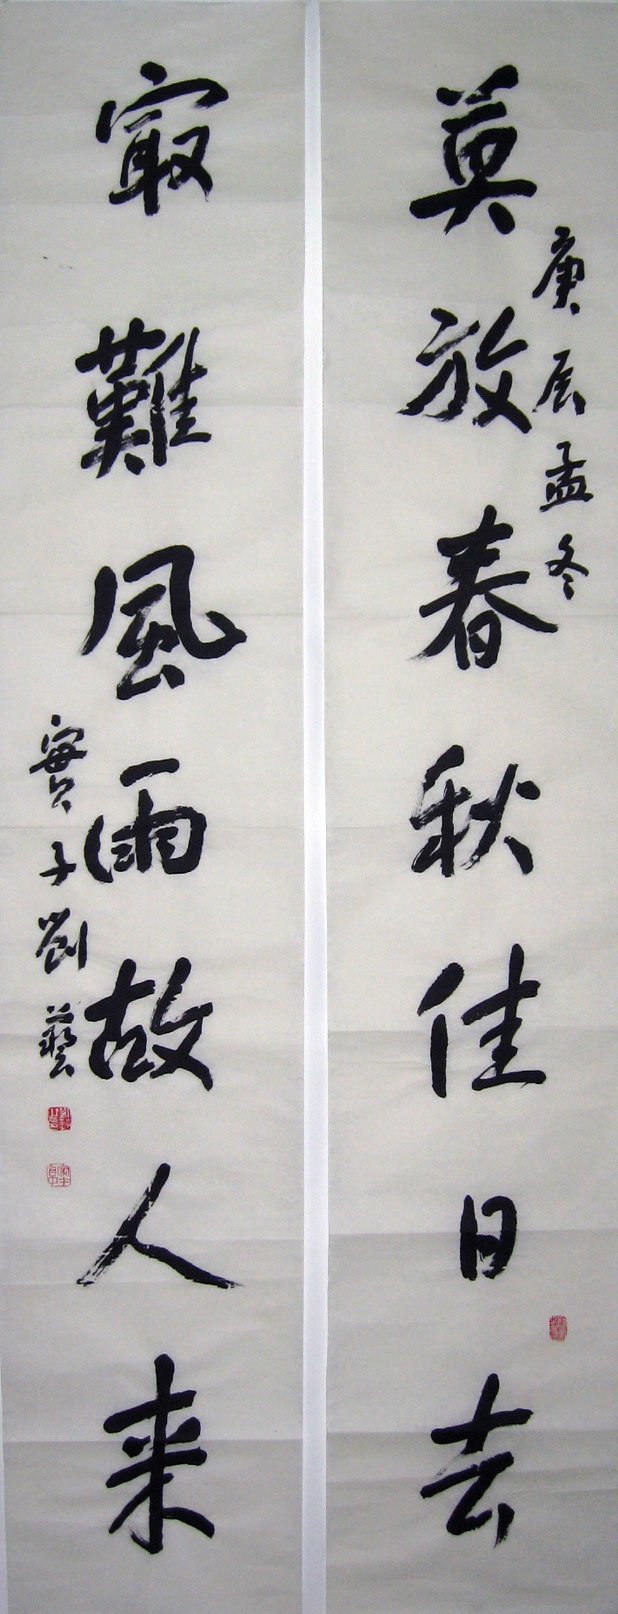 莫放春秋佳日去
庚辰孟冬
寂難風雨故人来
實子劉藝